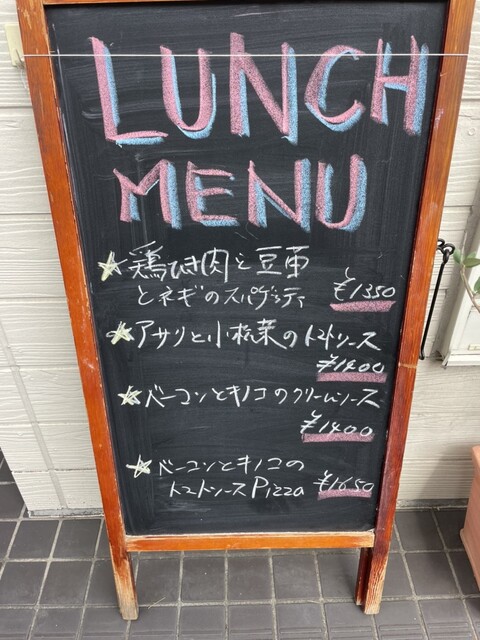 LUNCH
MENU
★鶏ひき肉と豆苗
とネギのスパゲッティ ¥1350
★アサリと小松菜のトマトソース
¥1400
★ベーコンとキノコのクリームソース
¥1400
★ベーコンとキノコの
トマトソースPizza ¥1650